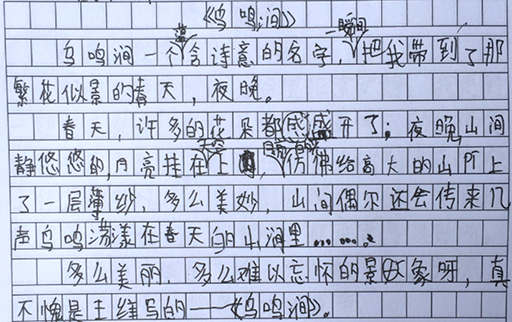 《鸟鸣涧》
鸟鸣涧一个充满诗意的名字，一瞬间把我带到了那
繁花似景的春天，夜晚。
春天，许多的花朵都盛开了；夜晚，山间
静悠悠的，月亮挂在天空上，仿佛给高大的山戶上
了一层薄纱，多么美妙，山间偶尔还会传来几
声鸟鸣荡漾在春天的山涧里……。
多么美丽，多么难以忘怀的景象呀，真
不愧是王维写的——《鸟鸣涧》。